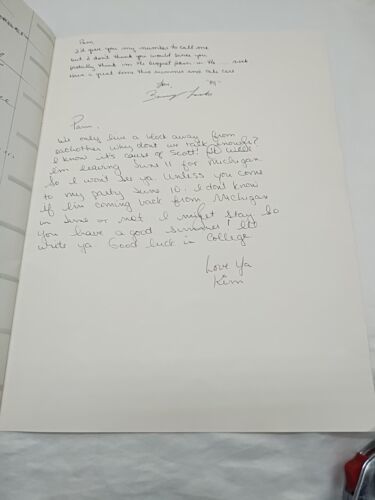 Pam,
I'd give you my number to call me
but I don't think you would since you
probably think I'm the biggest pain in the .... such
Have a great time this summer and take care
Pam,
We only live a block away from
eachother why don't we talk enough?
I know it's cause of Scott!
I'm leaving June 11 for Michigan
So I wont see ya. Unless you come
to my party June 10. I don't know
if I'm coming back from Michigan
in June or not. I might stay. So
you have a good summer!
write ya. Good luck in College
Love Ya
Kim